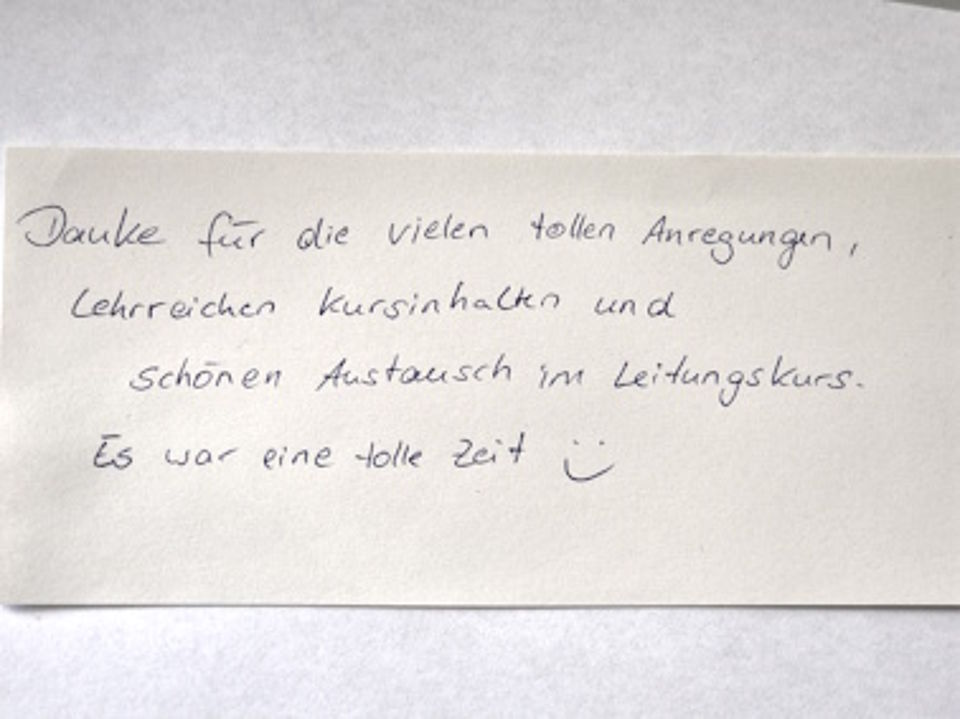 Danke für die vielen tollen Anregungen,
Lehrreichen Kursinhalten und
schönen Austausch im Leitungskurs.
Es war eine tolle Zeit :)